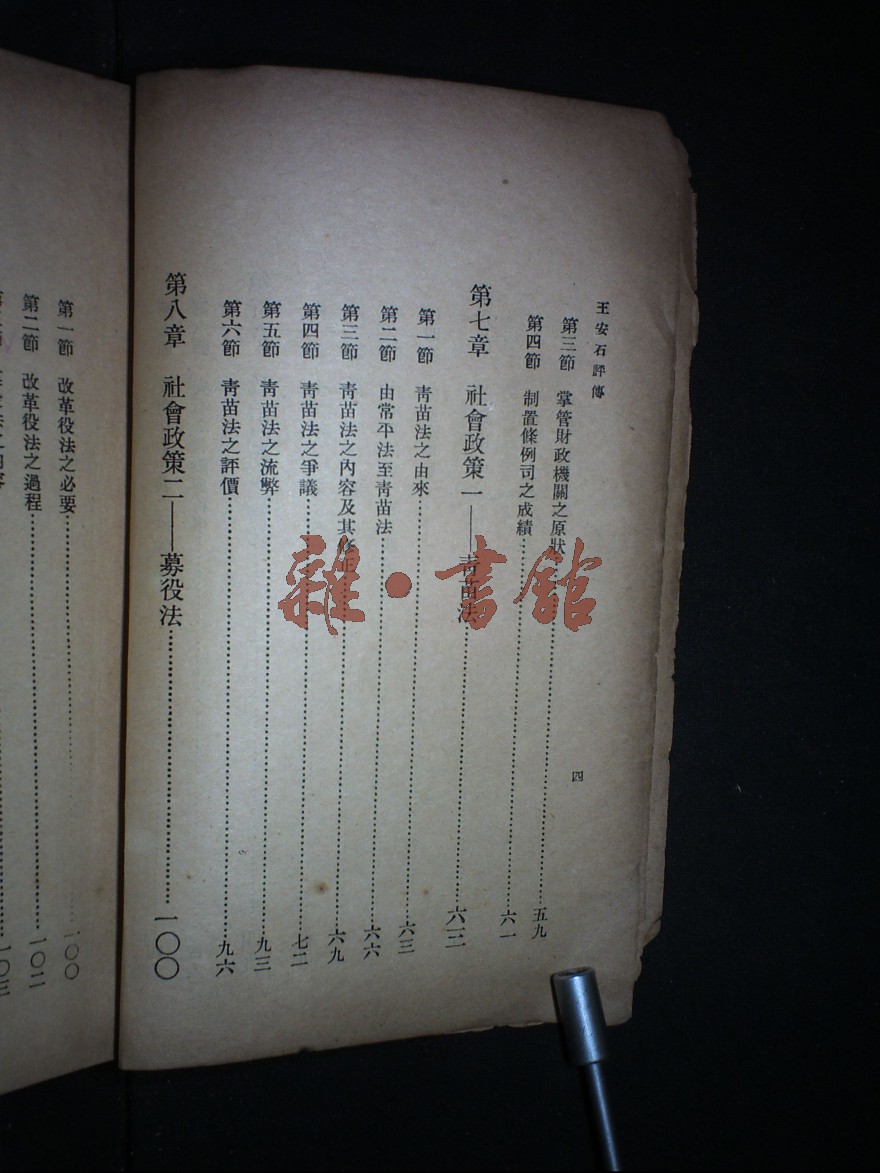 王安石評傳
四
第三節 掌管財政機關之原狀……五九
第四節 制置條例司之成績……六一
第七章 社會政策一——青苗法……六三
第一節 青苗法之由來……六三
第二節 由常平法至青苗法……六六
第三節 青苗法之內容及其修正……六九
第四節 青苗法之爭議……七二
第五節 青苗法之流弊……九三
第六節 青苗法之評價……九六
第八章 社會政策二——募役法……一〇〇
第一節 改革役法之必要……一〇〇
第二節 改革役法之過程……一〇二
一〇三
雜·書館